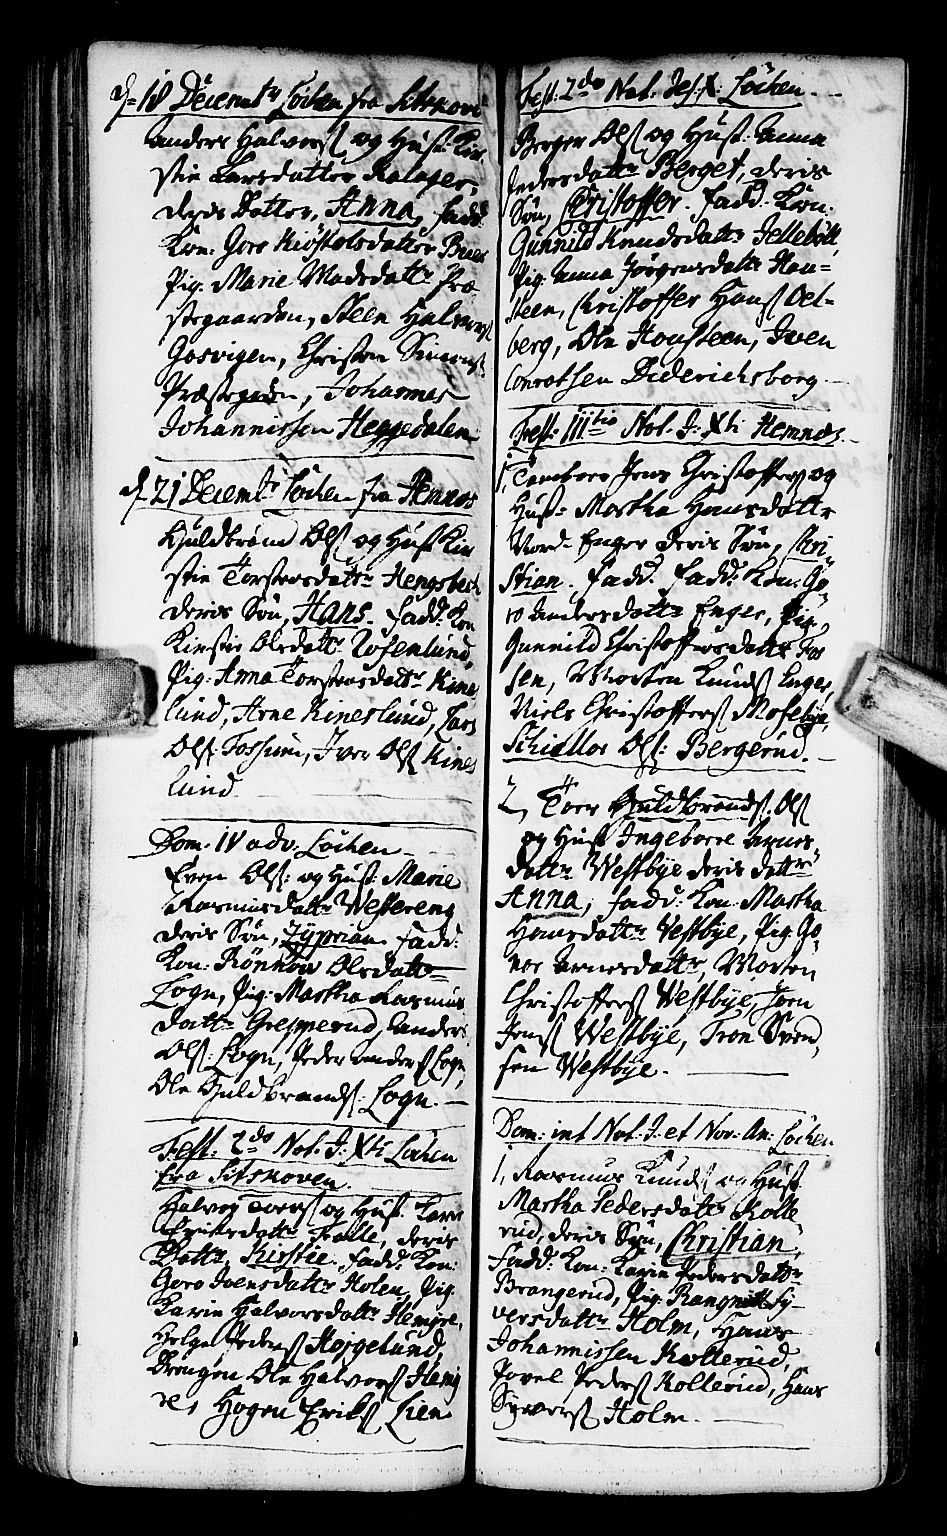 d. 18 Decembr Löchen fra Sitskove
Anders Halvors: og Hust: Kir
stie Larsdatter Kalager,
deris Datter, Anna, fadd:
Kon: Goro Kiöstelsdatter
Pig: Marie Madsdattr Præ
stegaarden, Steen Halvors:
Gosvigen, Christen Simens:
Præstegrden, Johannes
Johannissen Heggedalen
d. 21 Decembr Löchen fra Hemnæs
Guldbrand Ols: og Hust: Kir
stie Torstensdattr Hengsbech
deris Sön, Hans. fadd: Kon
Kirstie Olsdattr Rosenlund,
Pig: Anna Torstensdattr Kines
lund, Arne Kineslund, Lars
Ols: Fossum, Iver Ols: Kines
lund
Dom: IV adv: Löchen
Even Ols: og Hust: Marie
Rasmusdattr Westereng
deris Sön, Zyprian. fadd:
Kon: Rönnow Olsdattr
Logn, Pig: Martha Rasmus
dattr Grepperud, Anders
Ols: Logn, Peder Anders: Logn,
Ole Guldbrands: Logn.
Fest: 2do Nat: J: Xti Löchen
fra Sitskoven.
Halvor Tors: og Hust: Karn
dattr Falle, deris
Dattr, Kirstie. fadd: Kon:
Goro Ivensdattr Holen, Pig.
Karin Halvorsdattr
Helge Peders: Hojgelund,
Drengen Ole Halvors:
Hogen Eriks: Lien
Fest: 2do Nat: Jes: X: Löchen.
Berger Ols: og Hust: Anna
Pedersdattr Berget, deris
Sön, Christoffer. fadd: Kon:
Gunnild Knudsdattr
Pig: Anna Jörgensdattr Hau=
steen, Christoffer Hans: Oel-
berg, Ole Hausteen, Iven
Conrotsen Diderichsborg
Fest: IIItio Nat: J: Xti Hemnæs.
1, Tambour Jens Christoffers: og
Hust: Martha Hansdattr
Nord- Enger deris Sön, Chri
stian. fadd: fadd: Kon: Gö
ro Andersdattr Enger, Pig:
Gunnild Christoffersdattr Fos
sen, Morten Knuds: Enger,
Niels Christoffers: Mosebye,
Ols: Bergerud.
2, Tver Guldbrands: Ols:
og Hust: Ingeborre Arnes
dattr Westbye deris dattr
Anna, fadd: Kon: Martha
Hansdattr Westbye, Pig: Go
ner Arnesdattr, Morten
Christoffers: Westbye, Jörn
Jens: Westbye, Tron Sven
sen Westbye.
Dom: int Nat: J. et Nov: An: Löchen
1, Rasmus Knuds: og Hust:
Martha Pedersdattr Kolle
rud, deris Sön, Christian,
Fadd: Kon: Karin Pedersdattr
Brangerud, Pig: Rangnild Sy-
versdattr Holm, Hans
Johannissen Kollerud,
Povel Peders: Kollerud, Hans
Syvers: Holm.